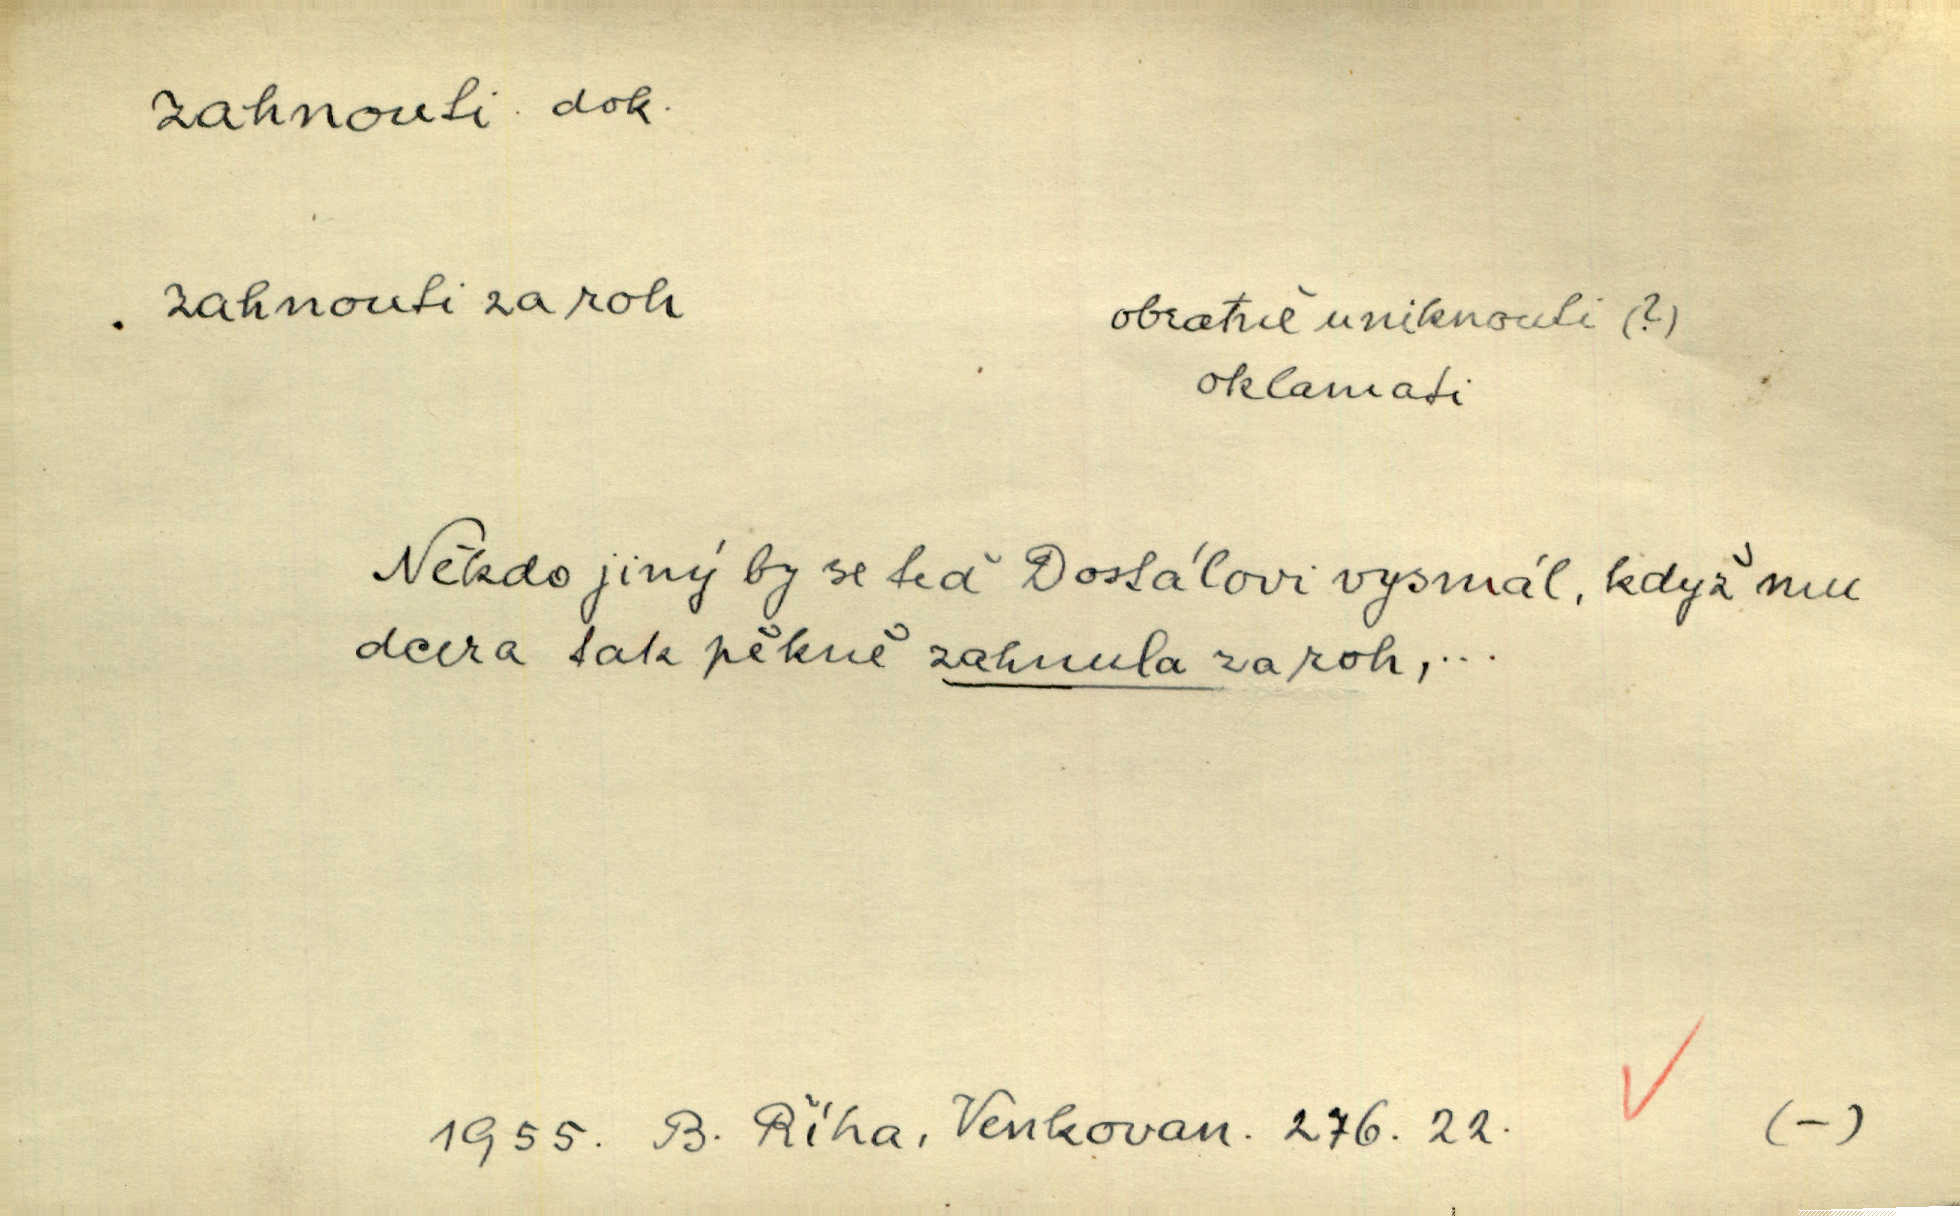 zahnouti. dok.
. zahnouti za roh
obratně uniknouti (?)
oklamati
Někdo jiný by se teď Dostálovi vysmál, když mu
dcera tak pěkně zahnula za roh, ...
1955. B. Říha, Venkovan. 276. 22.
(-)